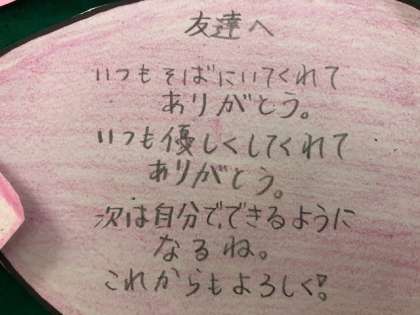 友達へ
いつもそばにいてくれて
ありがとう。
いつも優しくしてくれて
ありがとう。
次は自分でできるように
なるね。
これからもよろしく!